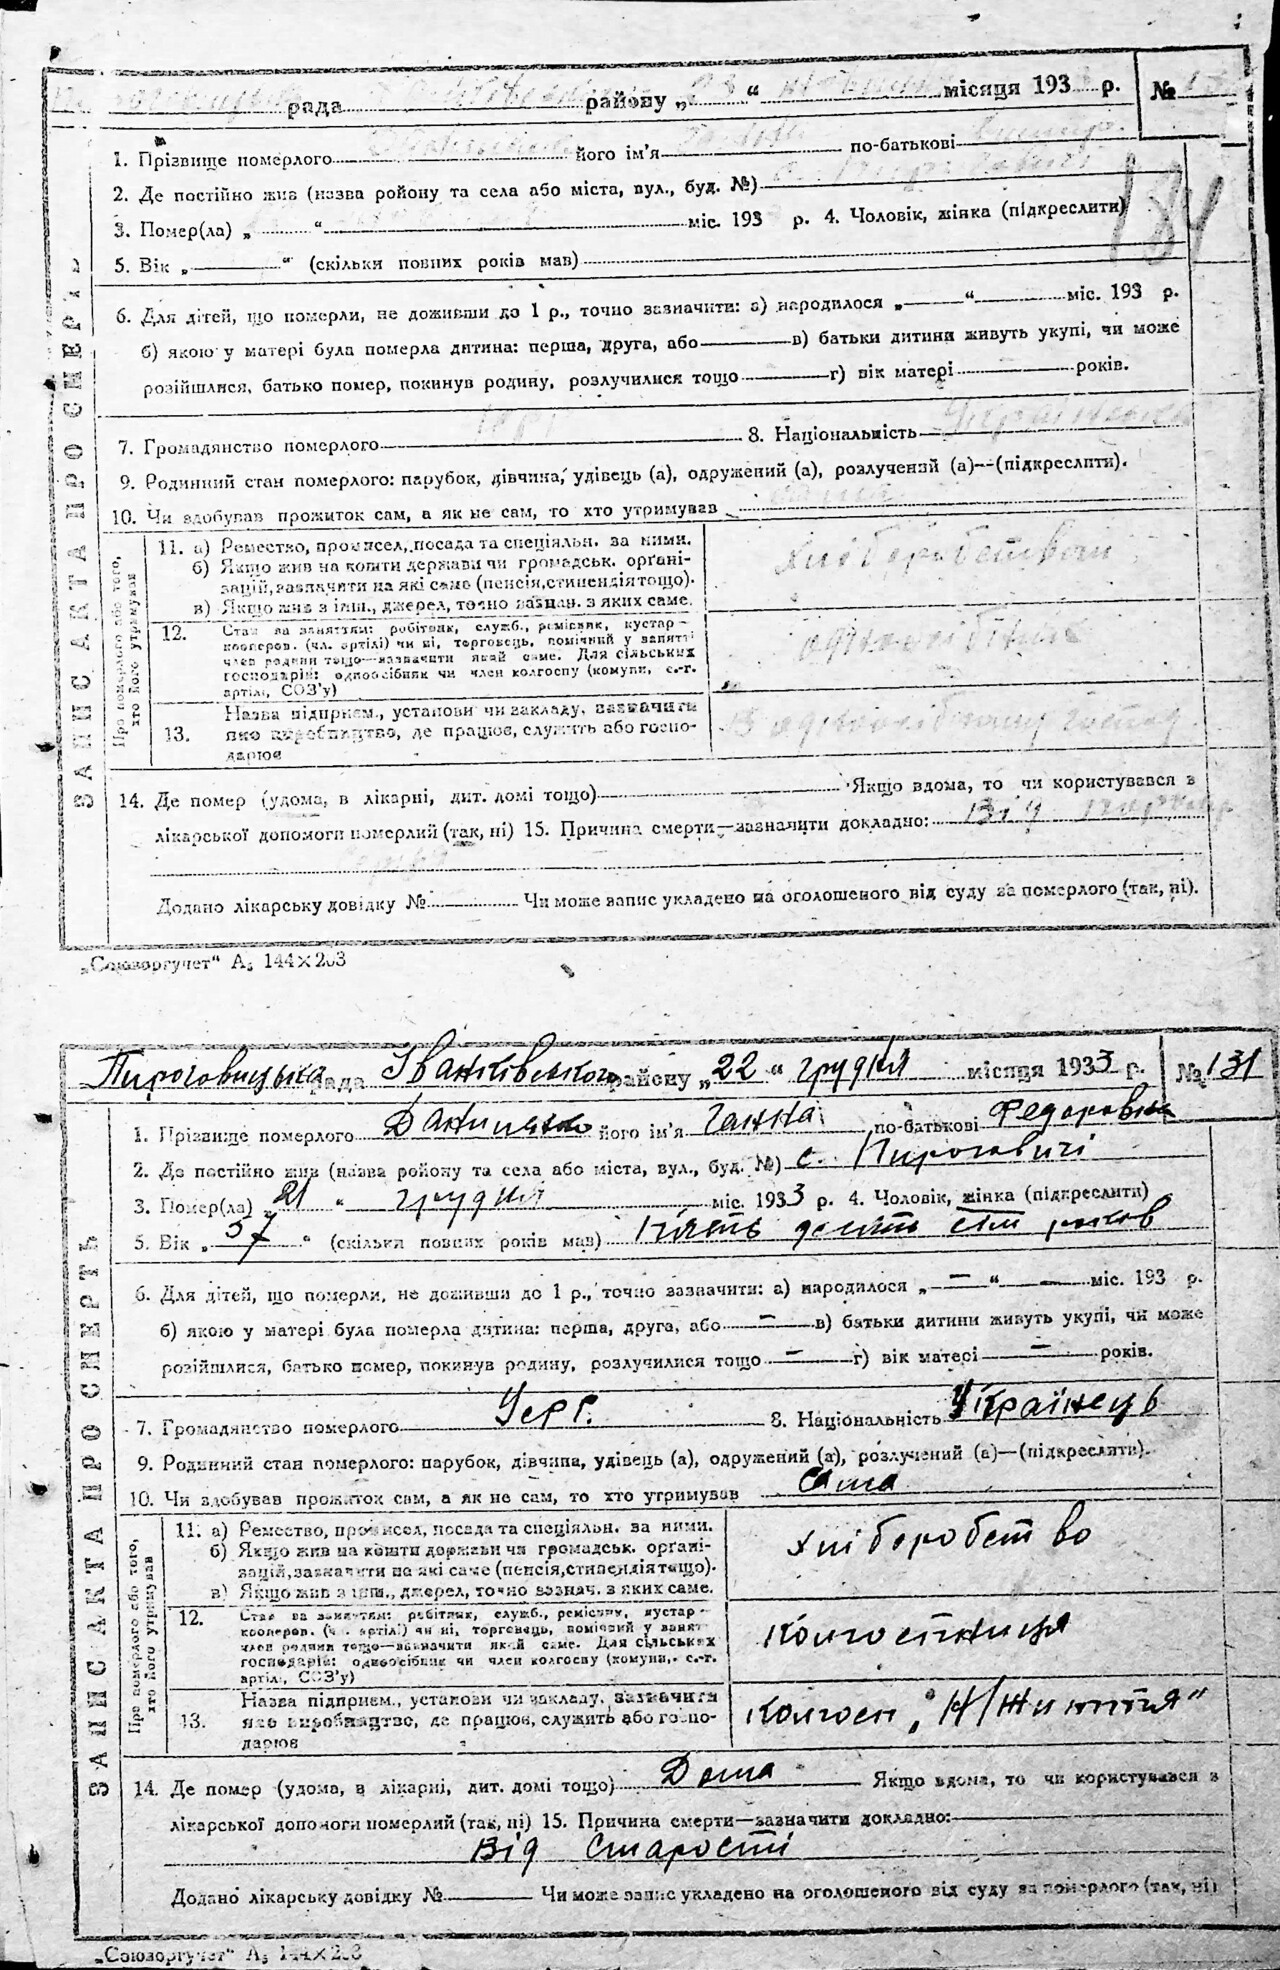 рада району „ “ місяця 193 р. №
1. Прізвище померлого його ім'я по-батькові
2. Де постійно жив (назва ройону та села або міста, вул., буд. №)
3. Помер(ла) „ “ міс. 193 р. 4. Чоловік, жінка (підкреслити)
184
5. Вік „ “ (скільки повних років мав)
6. Для дітей, що померли, не доживши до 1 р., точно зазначити: а) народилося „ “ міс. 193 р.
б) якою у матері була померла дитина: перша, друга, або в) батьки дитини живуть укупі, чи може
розійшлися, батько помер, покинув родину, розлучилися тощо г) вік матері років.
7. Громадянство померлого 8. Національність
9. Родинний стан померлого: парубок, дівчина, удівець (а), одружений (а), розлучений (а)—(підкреслити).
10. Чи здобував прожиток сам, а як не сам, то хто утримував
ЗАПИС АКТА ПРО СМЕРТЬ
Про померлого або того, хто його утримував
11. а) Ремество, промисел, посада та спеціяльн. за ними.
б) Якщо жив на кошти держави чи громадськ. органі-
зацій, зазначити на які саме (пенсія, стипендія тощо).
в) Якщо жив з інш., джерел, точно зазнач. з яких саме.
хліборобством
12. Стан за заняттям: робітник, служб., ремісник, кустар-
кооперов. (чл. артілі) чи ні, торговець, помічний у занятті
член родини тощо—зазначити який саме. Для сільських
господарів: одноосібник чи член колгоспу (комуни, с.-г.
артілі, СОЗ'у)
13. Назва підприєм., установи чи закладу, зазначити
яке виробництво, де працює, служить або госпо-
дарює
14. Де помер (удома, в лікарні, дит. домі тощо) Якщо вдома, то чи користувався з
лікарської допомоги померлий (так, ні) 15. Причина смерти—зазначити докладно: Від
Додано лікарську довідку № Чи може запис укладено на оголошеного від суду за померлого (так, ні).
„Союзоргучет“ А₅ 144×203
Пироговицька рада Іванківського району „22“ грудня місяця 1933 р. № 131
1. Прізвище померлого Даниленко його ім'я Ганна по-батькові Федоровна
2. Де постійно жив (назва ройону та села або міста, вул., буд. №) с. Пироговичі
3. Помер(ла) „21“ грудня міс. 1933 р. 4. Чоловік, жінка (підкреслити)
5. Вік „57“ (скільки повних років мав) П'ять десять сім роков
6. Для дітей, що померли, не доживши до 1 р., точно зазначити: а) народилося „—“ — міс. 193 р.
б) якою у матері була померла дитина: перша, друга, або — в) батьки дитини живуть укупі, чи може
розійшлися, батько помер, покинув родину, розлучилися тощо — г) вік матері — років.
7. Громадянство померлого Усрр. 8. Національність Українець
9. Родинний стан померлого: парубок, дівчина, удівець (а), одружений (а), розлучений (а)—(підкреслити).
10. Чи здобував прожиток сам, а як не сам, то хто утримував сама
ЗАПИС АКТА ПРО СМЕРТЬ
Про померлого або того, хто його утримував
11. а) Ремество, промисел, посада та спеціяльн. за ними.
б) Якщо жив на кошти держави чи громадськ. органі-
зацій, зазначити на які саме (пенсія, стипендія тощо).
в) Якщо жив з інш., джерел, точно зазнач. з яких саме.
хліборобство
12. Стан за заняттям: робітник, служб., ремісник, кустар-
кооперов. (чл. артілі) чи ні, торговець, помічний у занятті
член родини тощо—зазначити який саме. Для сільських
господарів: одноосібник чи член колгоспу (комуни, с.-г.
артілі, СОЗ'у)
колгоспниця
13. Назва підприєм., установи чи закладу, зазначити
яке виробництво, де працює, служить або госпо-
дарює
колгосп „Н/Життя“
14. Де помер (удома, в лікарні, дит. домі тощо) Дома Якщо вдома, то чи користувався з
лікарської допомоги померлий (так, ні) 15. Причина смерти—зазначити докладно:
Від старости
Додано лікарську довідку № Чи може запис укладено на оголошеного від суду за померлого (так, ні)
„Союзоргучет“ А₅ 144×203